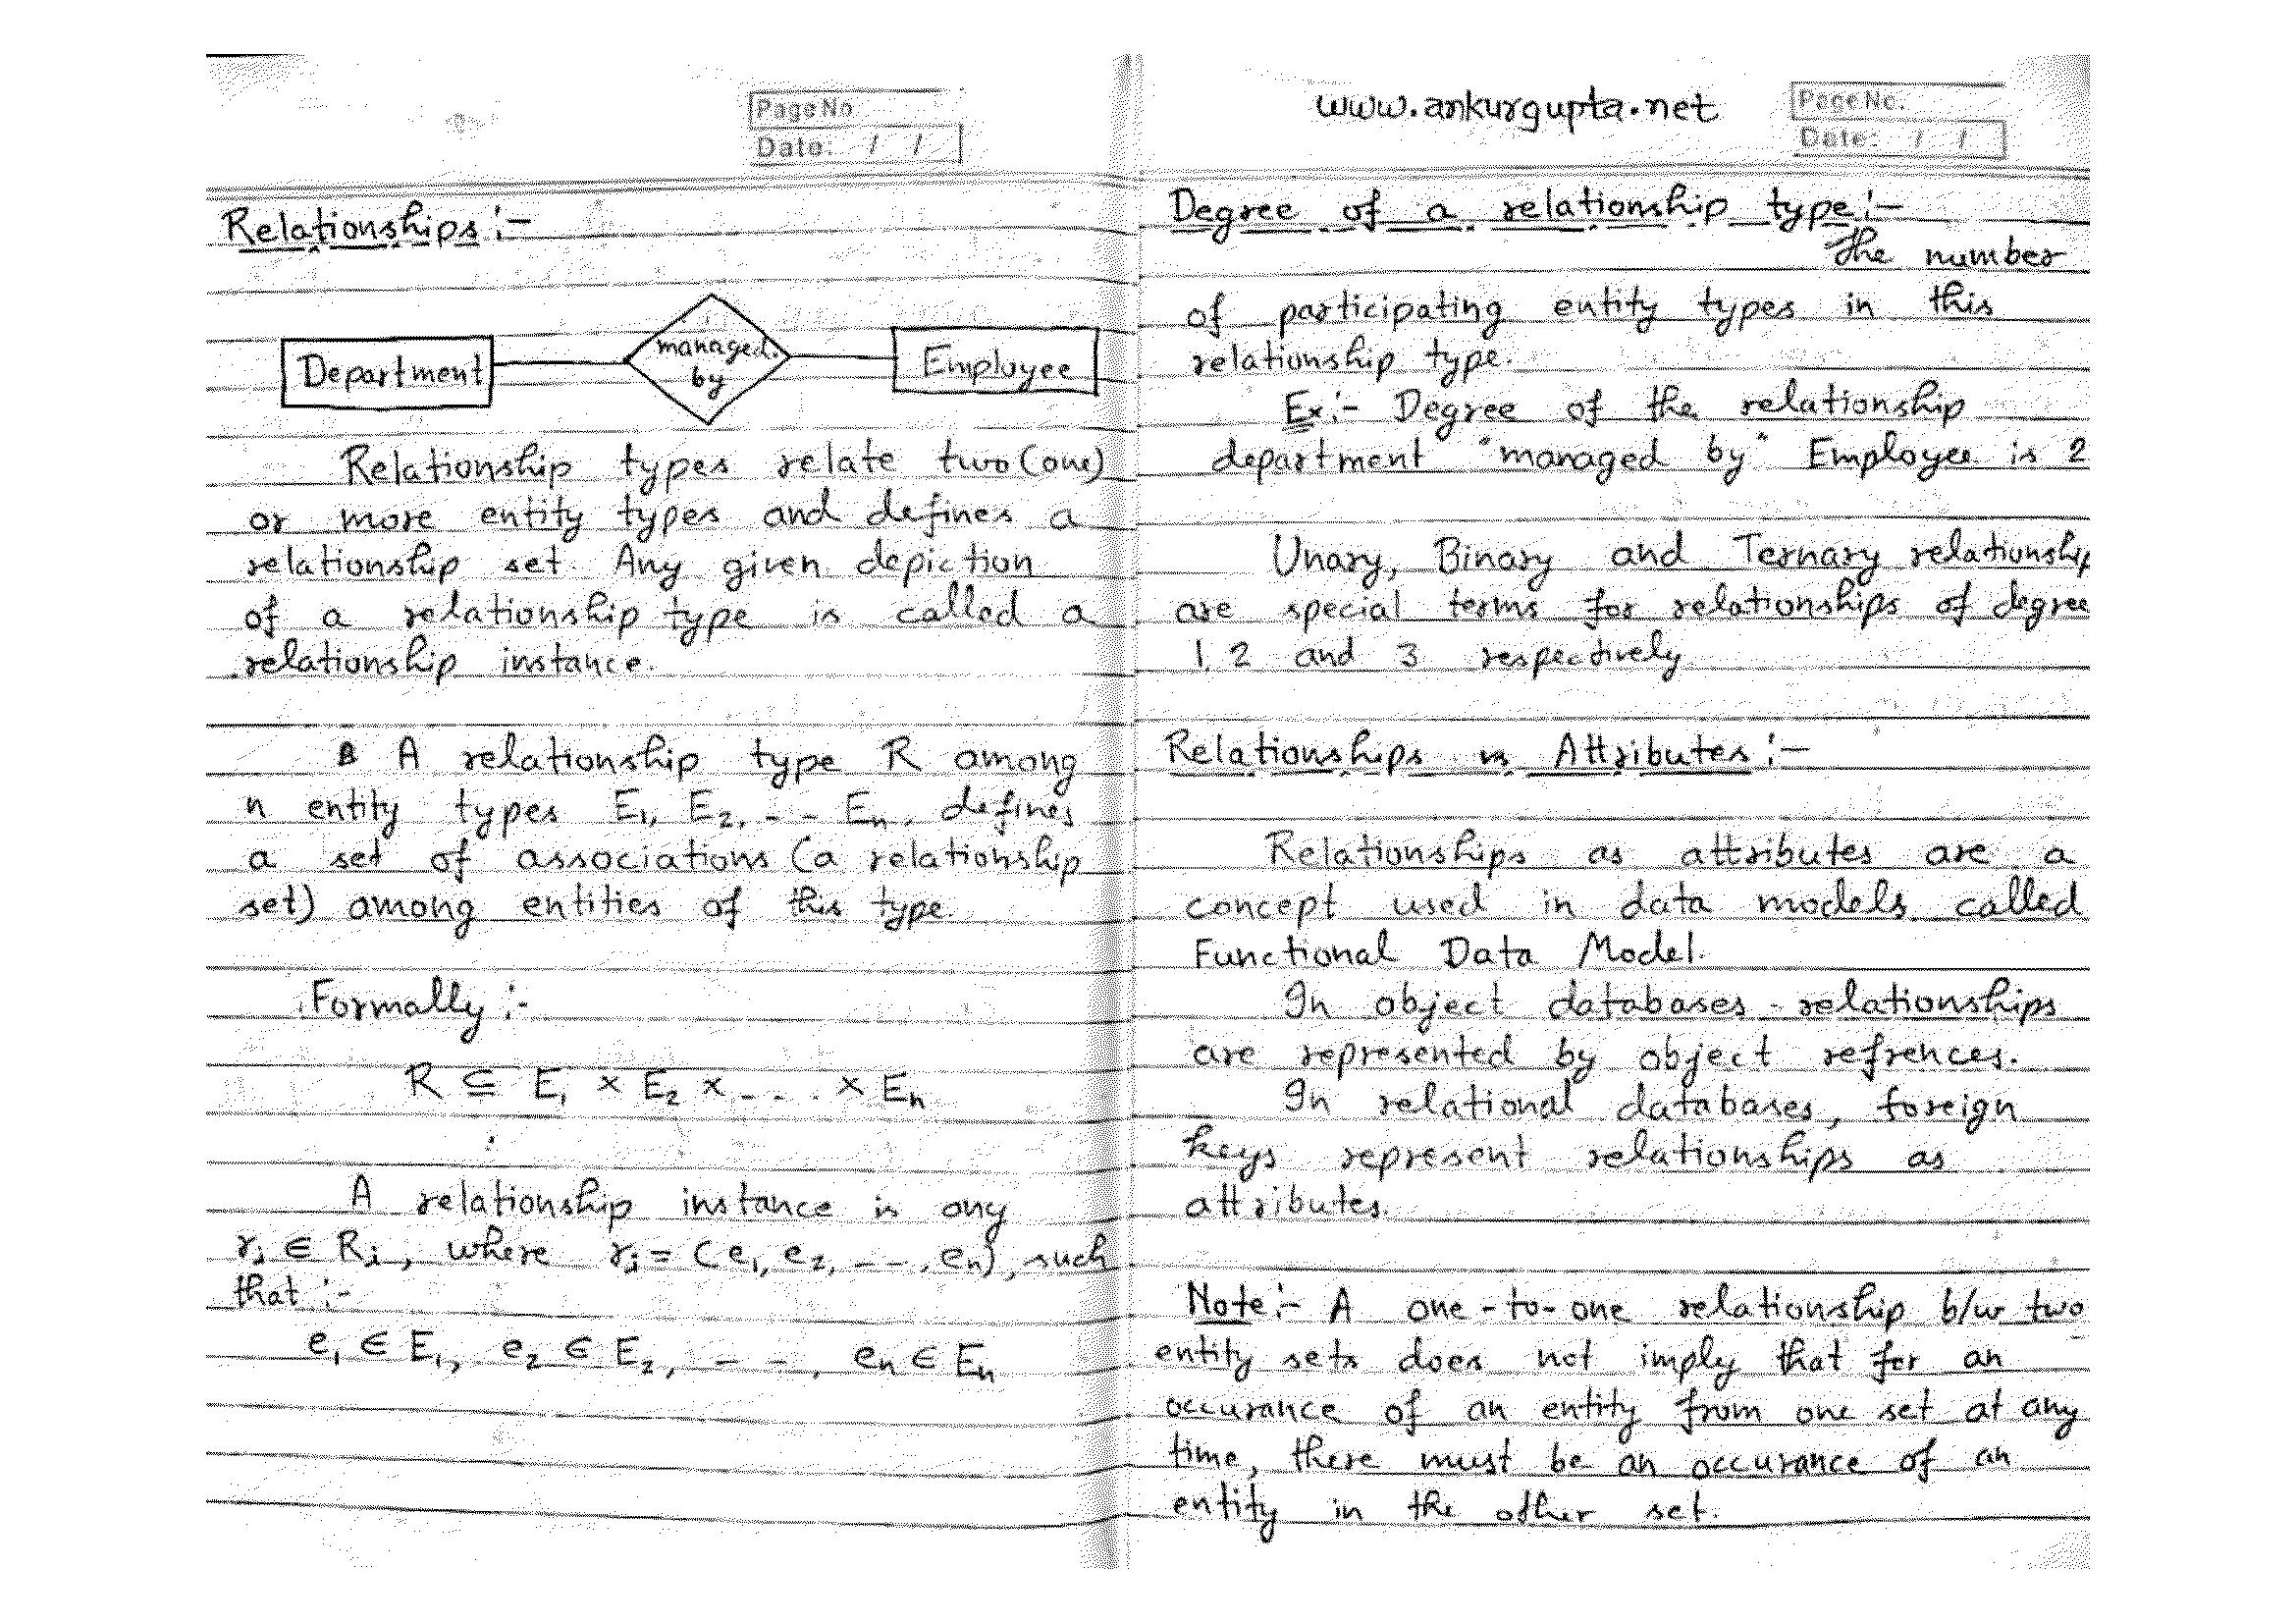 Page No
Date: / /
Relationships :-
Department
managed
by
Employee
Relationship types relate two (one)
or more entity types and defines a
relationship set. Any given depiction
of a relationship type is called a
relationship instance.
A relationship type R among
n entity types E₁, E₂, - - Eₙ, defines
a set of associations (a relationship
set) among entities of this type.
Formally :-
R ⊆ E₁ × E₂ × - - . × Eₙ
A relationship instance is any
rᵢ ∈ Rᵢ, where rᵢ = (e₁, e₂, - - -, eₙ), such
that :-
e₁ ∈ E₁, e₂ ∈ E₂, - - , eₙ ∈ Eₙ
www.ankurgupta.net
Page No.
Date: / /
Degree of a relationship type :-
The number
of participating entity types in this
relationship type.
Ex :- Degree of the relationship
department "managed by" Employee is 2
Unary, Binary and Ternary relationship
are special terms for relationships of degree
1, 2 and 3 respectively
Relationships vs Attributes :-
Relationships as attributes are a
concept used in data models called
Functional Data Model.
In object databases - relationships
are represented by object refrences.
In relational databases, foreign
keys represent relationships as
attributes.
Note :- A one-to-one relationship b/w two
entity sets does not imply that for an
occurance of an entity from one set at any
time, there must be an occurance of an
entity in the other set.